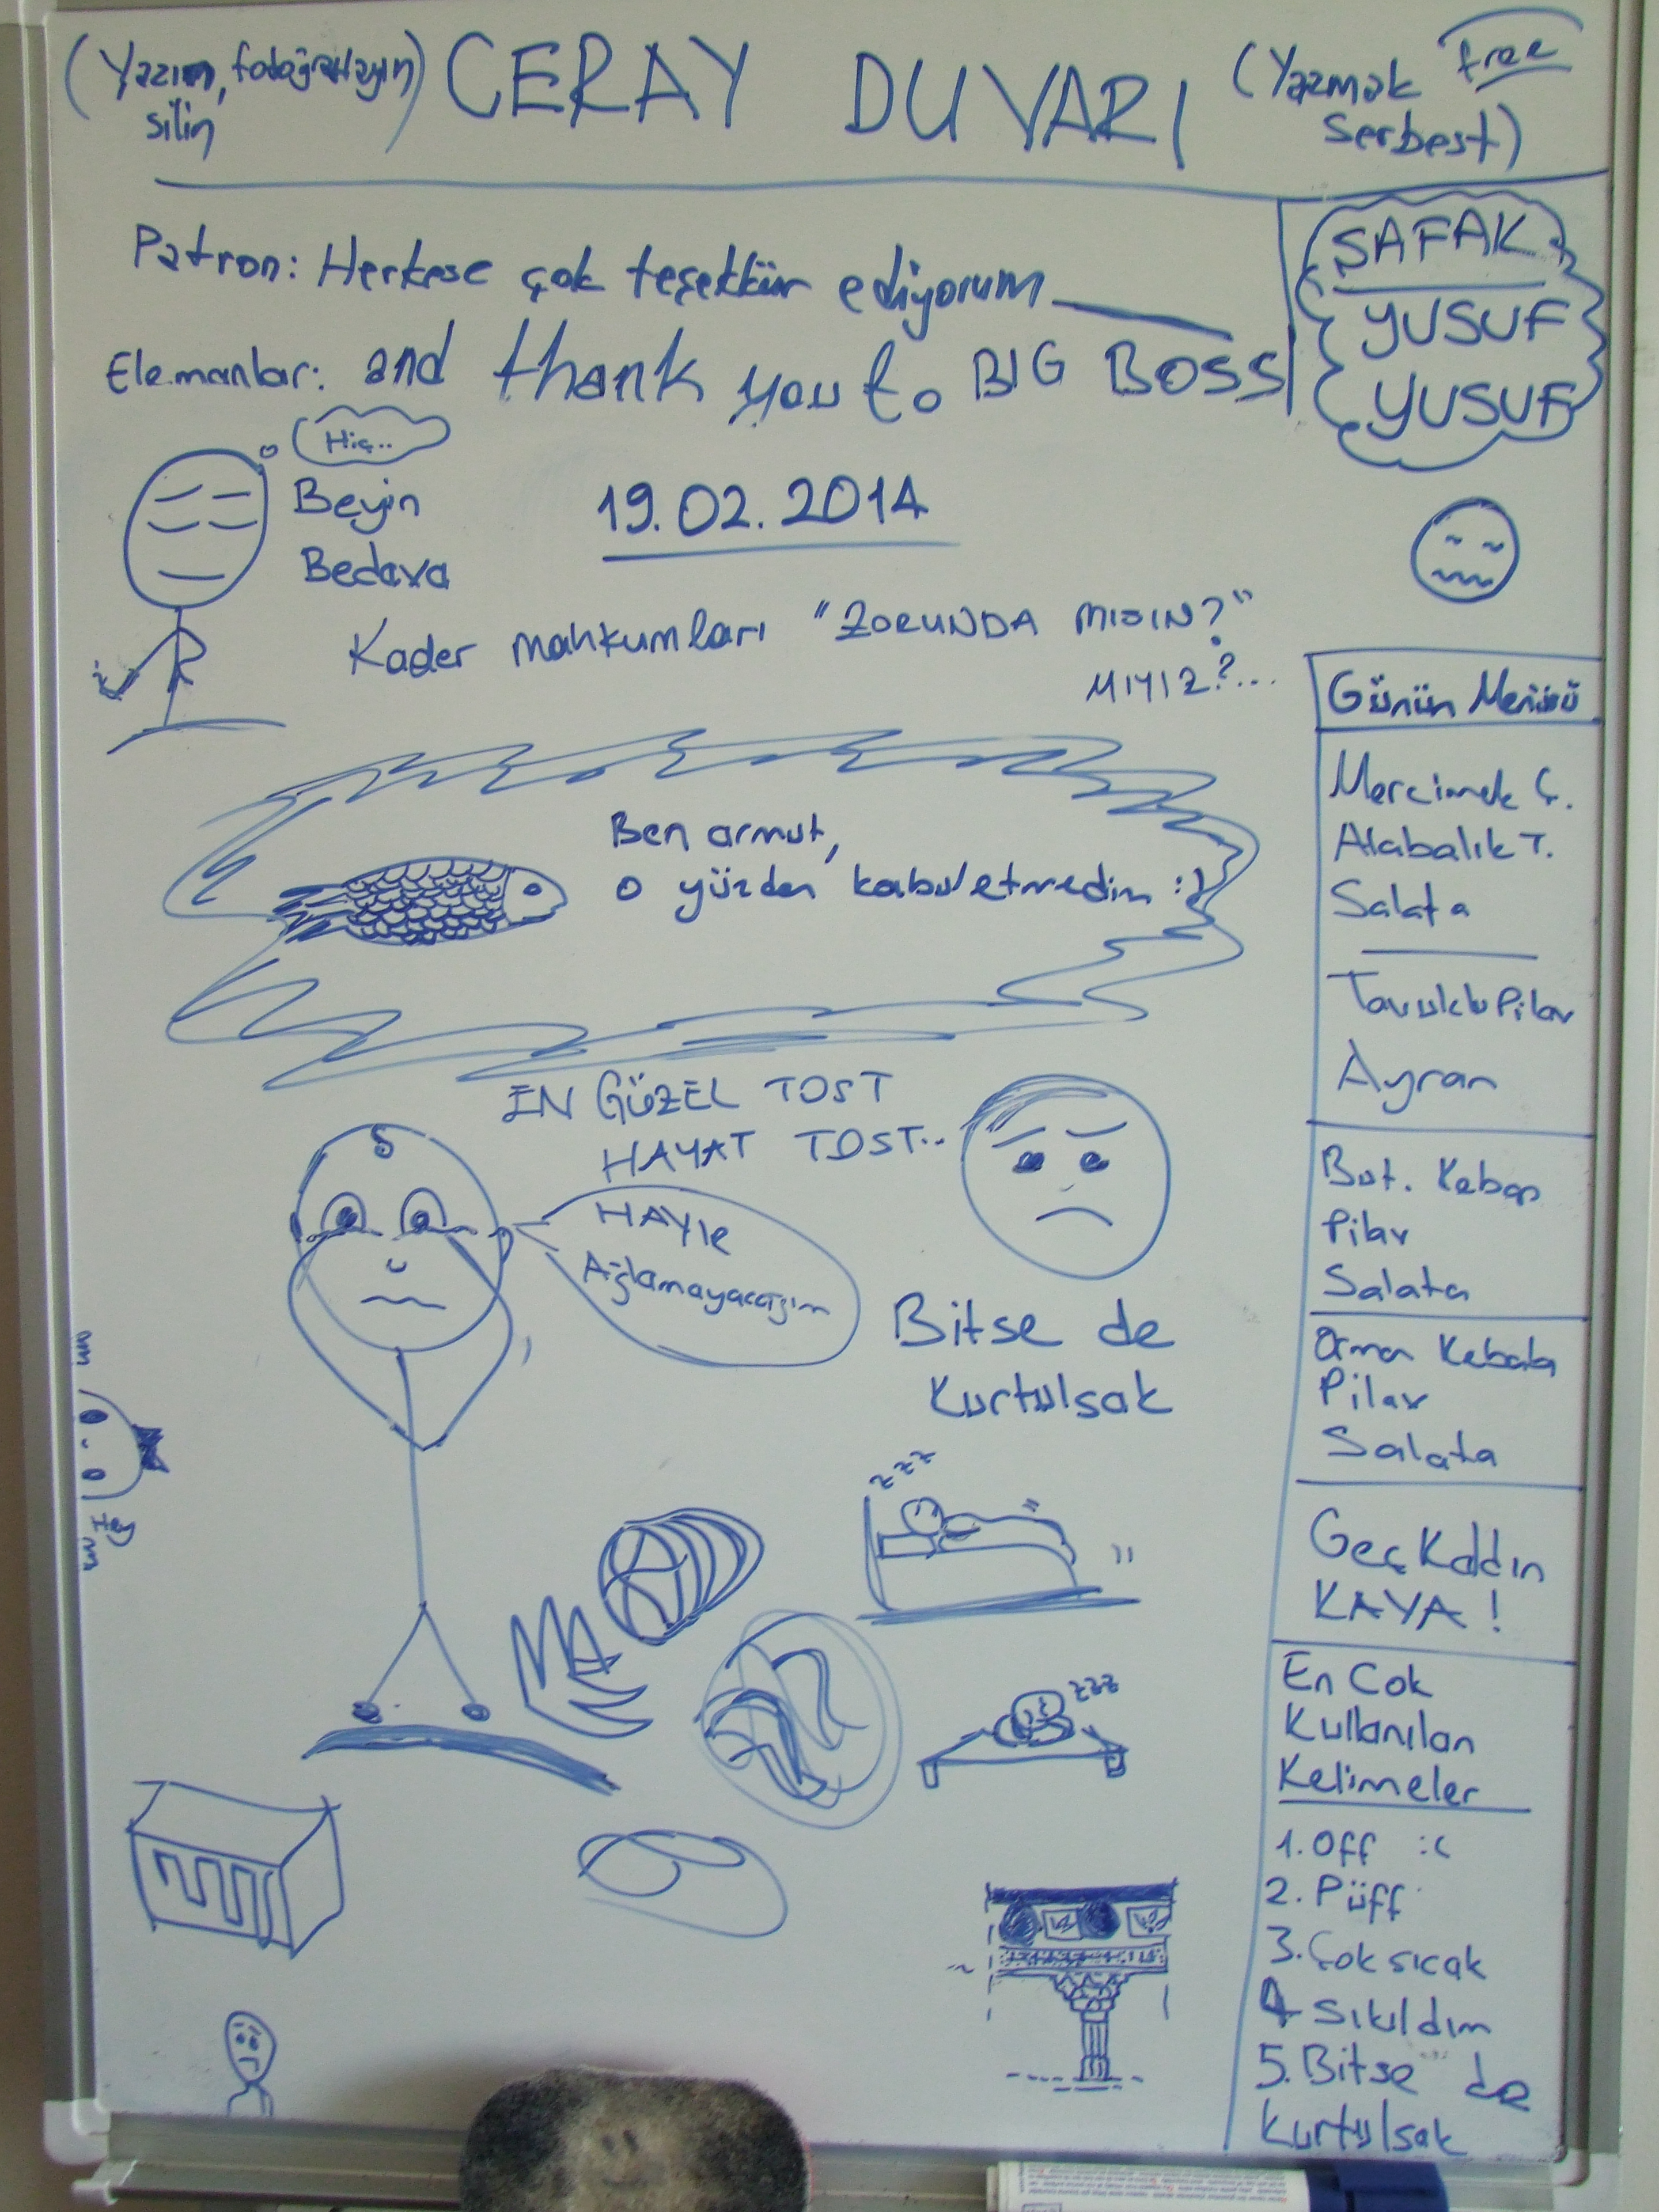 (Yazın, fotoğraflayın)
silin
CERAY DUVARI
(Yazmak free
serbest)
Patron: Herkese çok teşekkür ediyorum
Elemanlar: and thank you to BIG BOSS
ŞAFAK
YUSUF
YUSUF
Hiç..
Beyin
Bedava
19.02.2014
Kader mahkumları "ZORUNDA MISIN?"
MIYIZ?...
Ben armut,
o yüzden kabul etmedim :)
EN GÜZEL TOST
HAYAT TOST..
HAYIR
Ağlamayacağım
Bitse de
Kurtulsak
zzz
zzz
Hey
Günün Menüsü
Mercimek Ç.
Alabalık T.
Salata
Tavuklu Pilav
Ayran
But. Kebap
Pilav
Salata
Orman Kebabı
Pilav
Salata
Geç Kaldın
KAYA!
En Cok
Kullanılan
Kelimeler
1. Off :(
2. Püff
3. Çok sıcak
4 Sıkıldım
5. Bitse de
kurtulsak